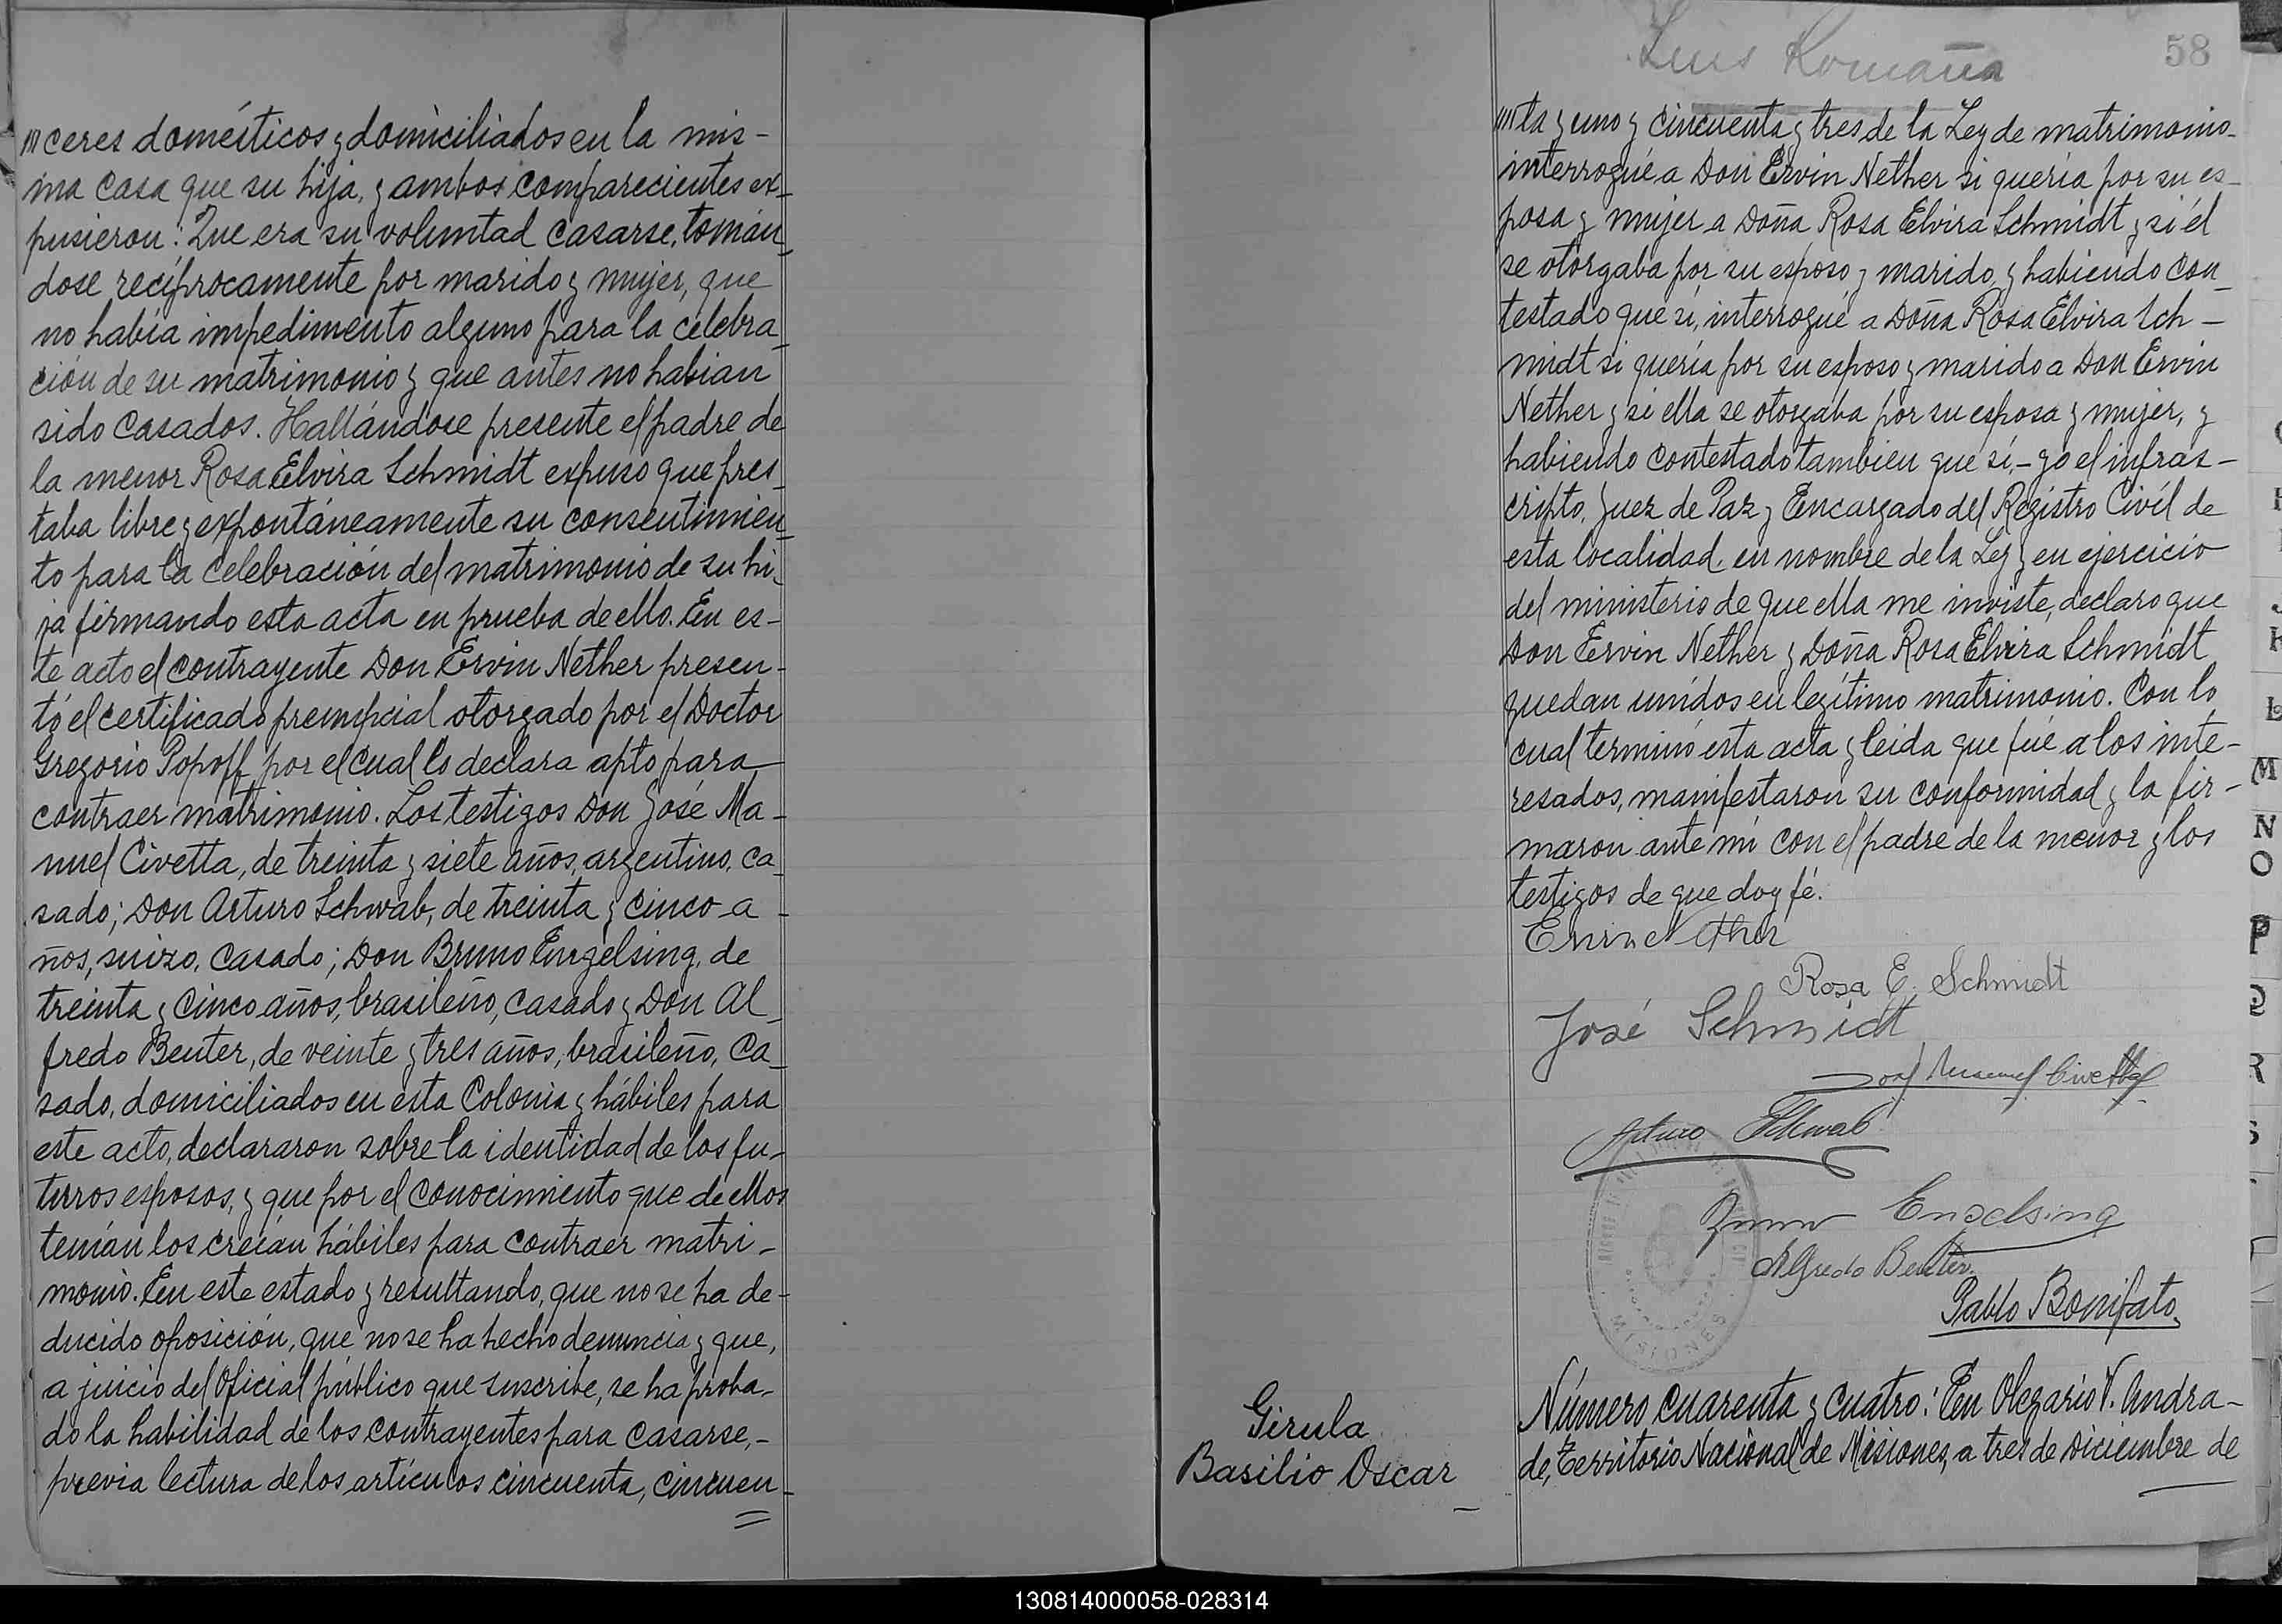 ///ceres domésticos y domiciliados en la mis-
ma casa que su hija, y ambos comparecientes ex-
pusieron: Que era su voluntad casarse, tomán-
dose recíprocamente por marido y mujer, que
no había impedimento alguno para la celebra-
ción de su matrimonio y que antes no habían
sido casados. Hallándose presente el padre de
la menor Rosa Elvira Schmidt expuso que pres-
taba libre y expontáneamente su consentimien-
to para la celebración del matrimonio de su hi-
ja firmando esta acta en prueba de ello. En es-
te acto el contrayente Don Ervin Nether presen-
tó el certificado prenupcial otorgado por el Doctor
Gregorio Popoff por el cual lo declara apto para
contraer matrimonio. Los testigos Don José Ma-
nuel Civetta, de treinta y siete años, argentino, ca-
sado; Don Arturo Schwab, de treinta y cinco a-
ños, suizo, casado; Don Bruno Engelsing, de
treinta y cinco años, brasileño, casado y Don Al-
fredo Beuter, de veinte y tres años, brasileño, ca-
sado, domiciliados en esta Colonia y hábiles para
este acto, declararon sobre la identidad de los fu-
turos esposos, y que por el conocimiento que de ellos
tenían los creían hábiles para contraer matri-
monio. En este estado y resultando, que no se ha de-
ducido oposición, que no se ha hecho denuncia y que,
a juicio del Oficial público que suscribe, se ha proba-
do la habilidad de los contrayentes para casarse,-
previa lectura de los artículos cincuenta, cincuen-
Luis Romaña
58
////ta y uno y cincuenta y tres de la Ley de matrimonio-
interrogué a Don Ervin Nether si quería por su es-
posa y mujer a Doña Rosa Elvira Schmidt y si él
se otorgaba por su esposo y marido, y habiendo con-
testado que sí, interrogué a Doña Rosa Elvira Sch-
midt si quería por su esposo y marido a Don Ervin
Nether y si ella se otorgaba por su esposa y mujer, y
habiendo contestado tambien que sí,- yo el infras-
cripto, Juez de Paz y Encargado del Registro Civíl de
esta localidad, en nombre de la Ley y en ejercicio
del ministerio de que ella me inviste, declaro que
Don Ervin Nether y Doña Rosa Elvira Schmidt
quedan unídos en legítimo matrimonio. Con lo
cual terminó esta acta y leida que fué a los inte-
resados, manifestaron su conformidad y la fir-
maron ante mí con el padre de la menor y los
testigos de que doy fé.
Ervin Nether
Rosa E. Schmidt
José Schmidt
José Manuel Civetta
Arturo Schwab
Bruno Engelsing
Alfredo Beuter
Pablo Bonifato.
MISIONES
Girula
Basilio Oscar
Número cuarenta y cuatro: En Olegario V. Andra-
de, Territorio Nacional de Misiones, a tres de Diciembre de
L
M
N
O
P
Q
R
S
130814000058-028314